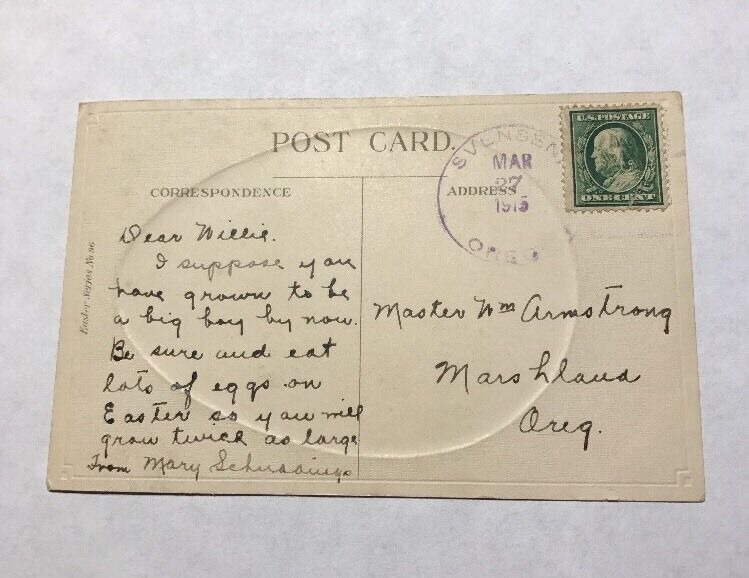 POST CARD.
CORRESPONDENCE
ADDRESS
SVENSEN
MAR
27
1915
OREG
U.S. POSTAGE
ONE CENT
Easter Series No 96
Dear Willie.
I suppose you
have grown to be
a big boy by now.
Be sure and eat
lots of eggs on
Easter so you will
grow twice as large
From Mary
Master Wm Armstrong
Marshland
Oreg.